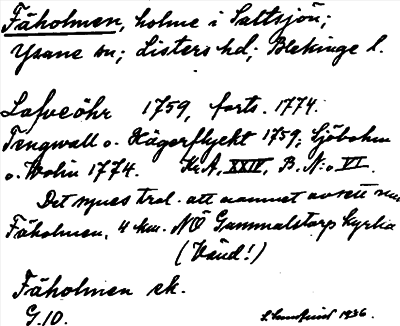 Fäholmen, holme i Saltsjön;
Ysane sn; Listers hd; Blekinge l.
Lafveöhr 1759, forts. 1774.
Tengwall o. Hägerflyckt 1759; Sjöbohm
o. Wolin 1774. Kr.A, XXIV, B. N:o VI.
Det synes trol. att namnet avsett nuv.
Fäholmen, 4 km. NÖ Gammalstorp kyrka
(Vänd!)
Fäholmen ek.
G.10. 1936.